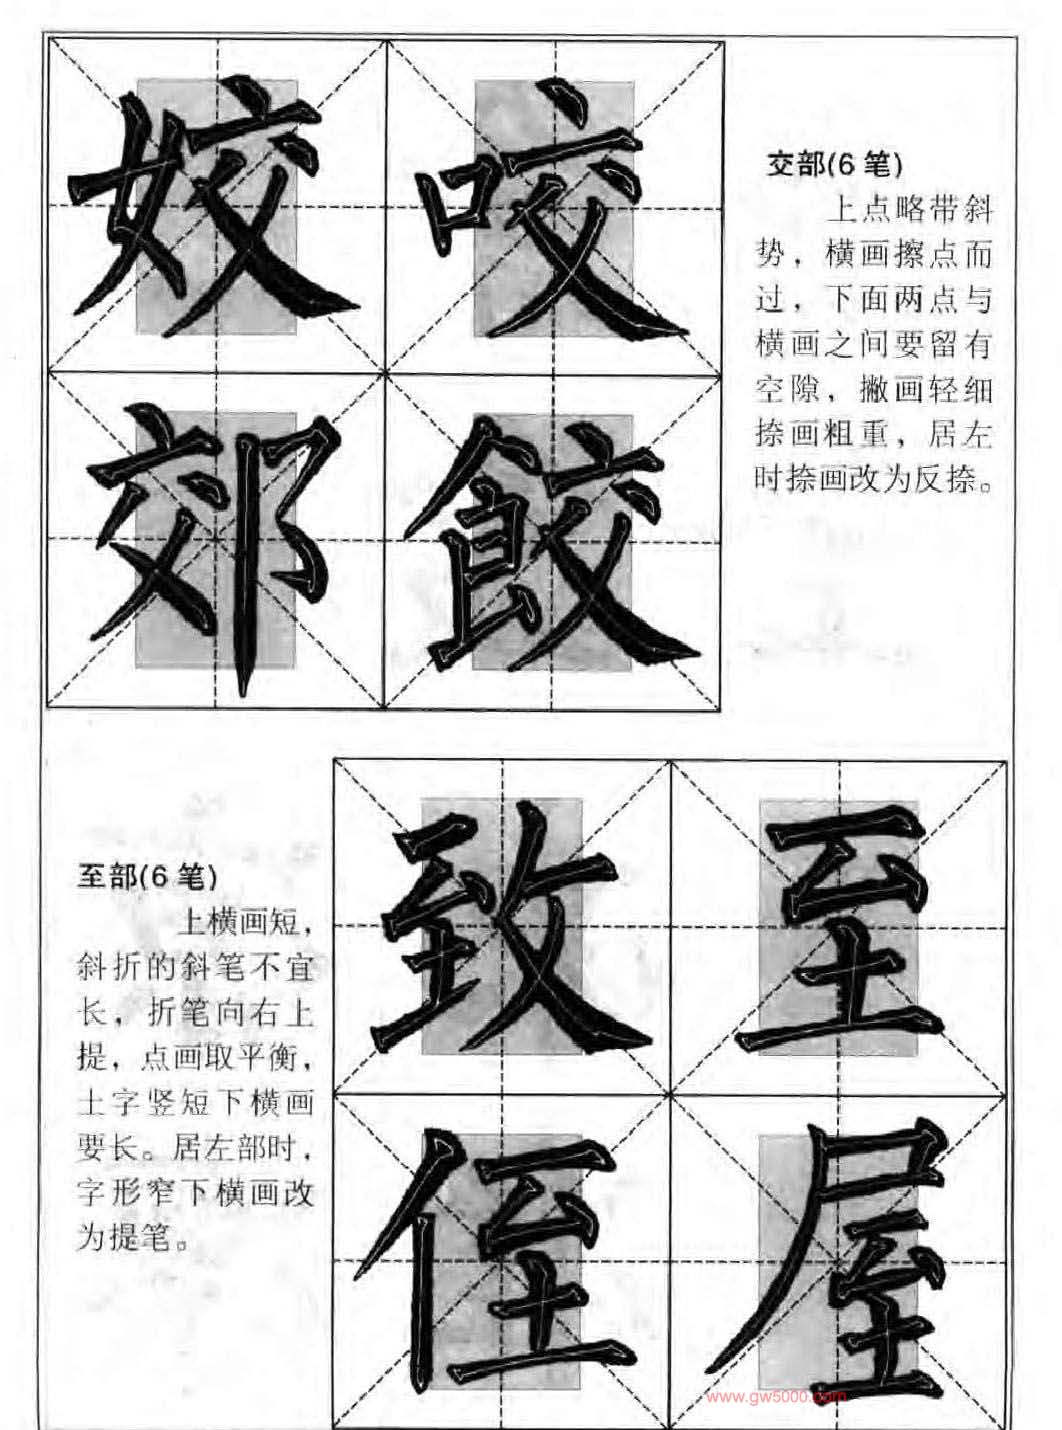 姣咬
交部(6笔)
上点略带斜
势，横画擦点而
过，下面两点与
横画之间要留有
空隙，撇画轻细
捺画粗重，居左
时捺画改为反捺。
郊餃
至部(6笔)
上横画短，
斜折的斜笔不宜
长，折笔向右上
提，点画取平衡，
土字竖短下横画
要长。居左部时，
字形窄下横画改
为提笔。
致至
侄屋
www.gw5000.com